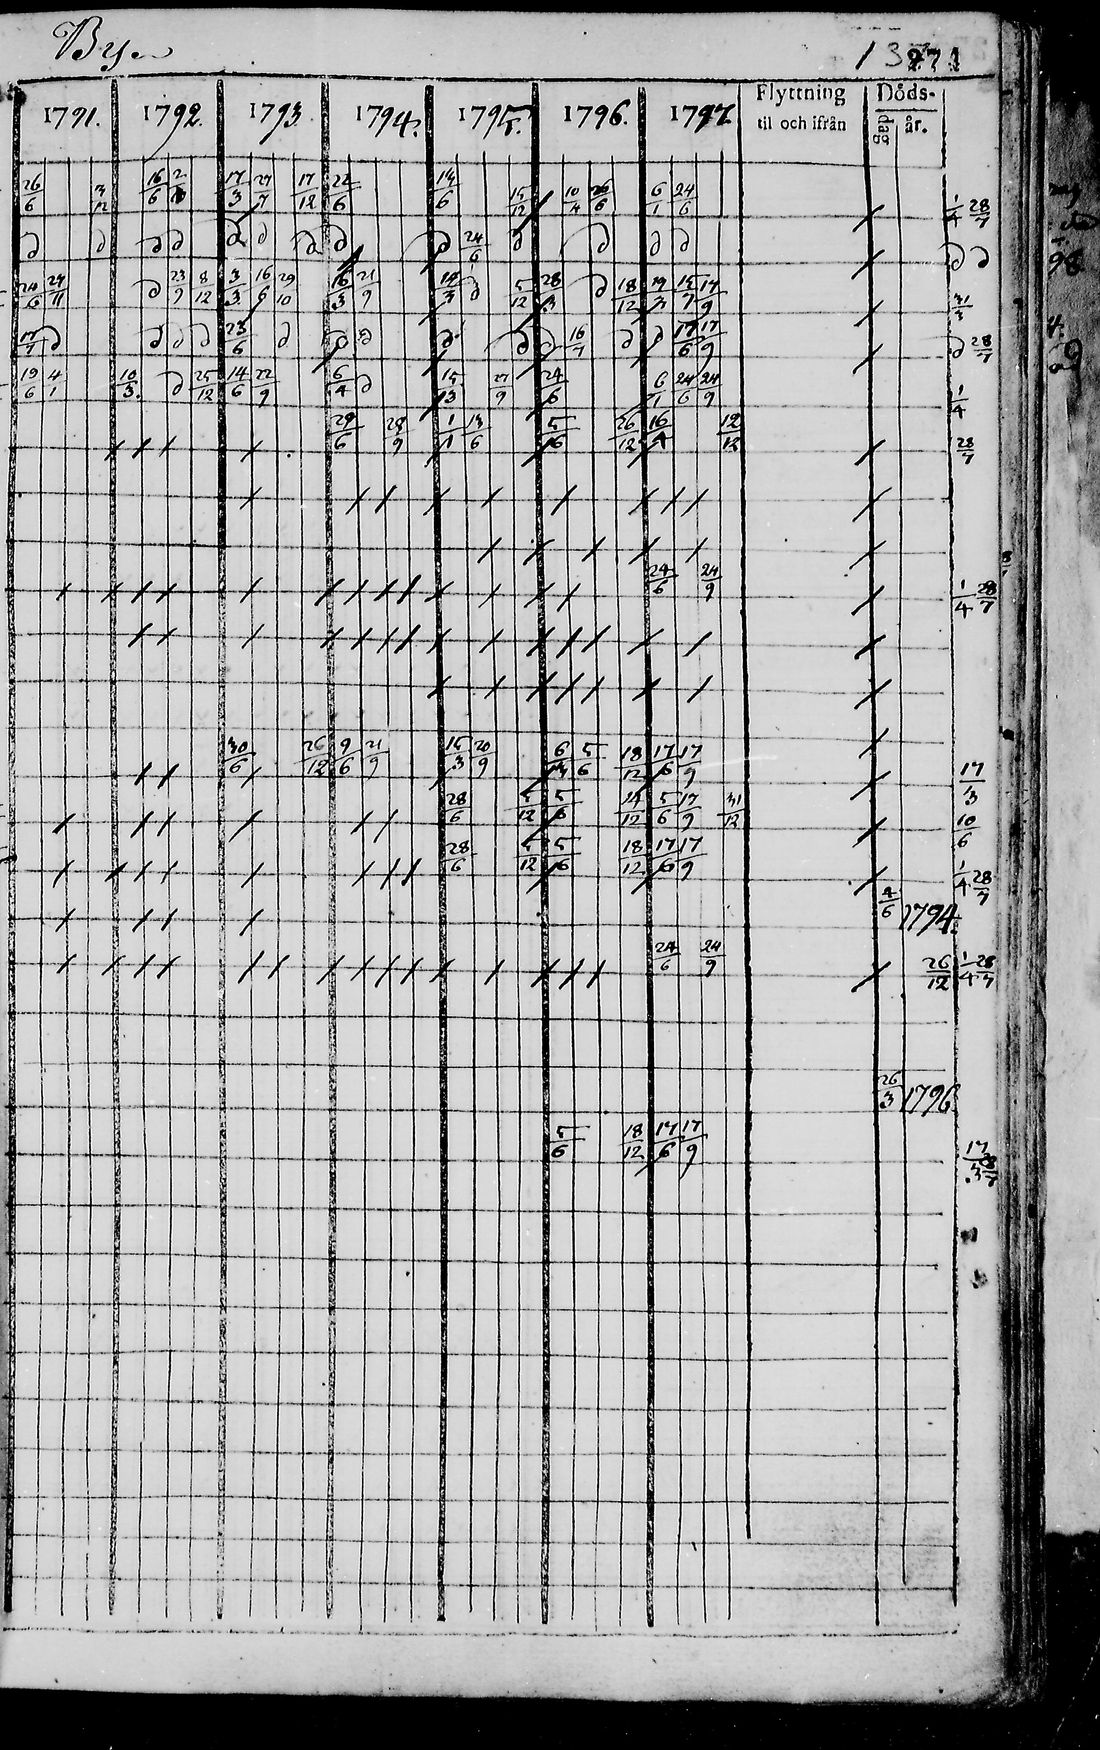 Byn
13 271
1791. 1792. 1793. 1794. 1795. 1796. 1797 Flyttning til och ifrån Döds- dag år.
26/6 3/12 16/6 17/3 27/7 17/12 22/6 14/6 15/12 10/4 26/6 6/1 24/6 1/4 28/7
24/6
24/6 27/11 23/9 8/12 3/3 16/6 29/10 16/3 21/9 14/3 5/12 28/3 18/12 15/7 17/9 31/3
17/7 23/6 16/7 17/6 17/9 28/7
19/6 4/1 10/3 25/12 14/6 22/9 6/4 15/3 27/9 24/6 6/1 24/6 24/9 1/4
29/6 28/9 1/1 13/6 5/6 26/12 16/4 12/12 28/7
24/6 24/9 1/4 28/7
30/6 26/12 9/6 21/9 15/3 20/9 6/3 5/6 18/12 17/6 17/9 17/3
28/6 5/12 5/6 24/12 5/6 17/9 31/12 10/6
28/6 5/12 5/6 18/12 17/6 17/9 1/4 28/7
4/6 1794.
24/6 24/9 26/12 1/4 28/7
26/3 1796
5/6 18/12 17/6 17/9 17/3 28/7